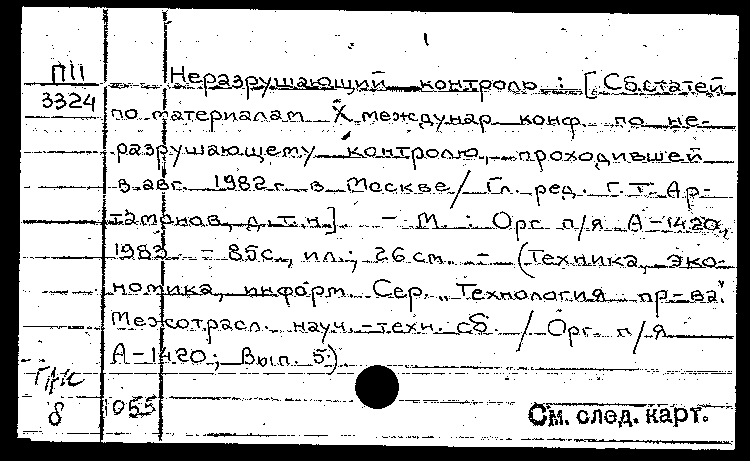 П11
3324
Неразрушающий контроль : [Сб.статей
по материалам X междунар конф. по не-
разрушающему контролю, проходившей
в авг. 1982 г. в Москве / Гл. ред. Г.Т. Ар-
таманов, д.т.н.]. - М. : Орг п/я А-1420,
1983. - 85с., ил.; 26 см. - (Техника, эко-
номика, информ. Сер. „Технология пр-ва".
Межотрасл. науч.-техн. сб. / Орг. п/я
А-1420; Вып. 5).
ГАК
8
055
См. след. карт.